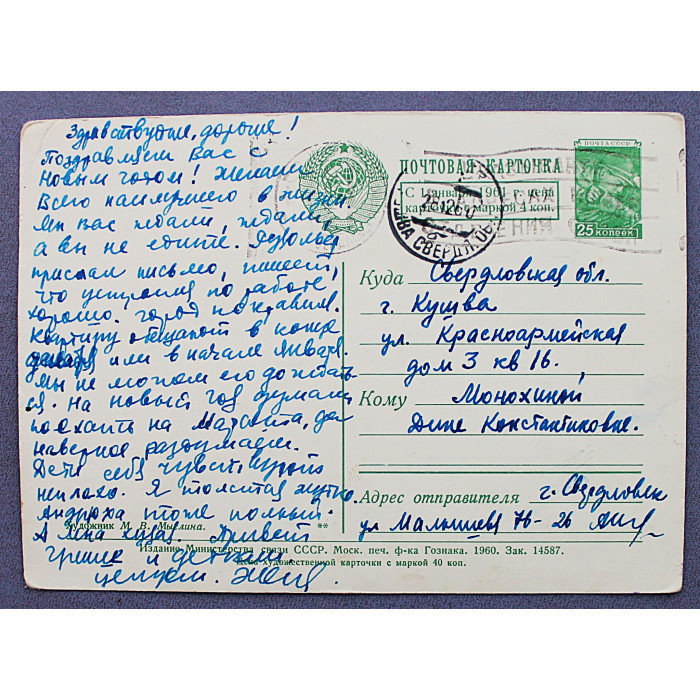 Здравствуйте, дорогие!
Поздравляем Вас с
Новым годом! Желаем
Всего наилучшего в жизни.
Мы вас ждали, ждали,
а вы не едите.
прислал письмо, пишет,
что устроился по работе,
хорошо. город понравился.
Квартиру обещают в конце
декабря или в начале января.
Мы не можем его дождать-
ся. На новый год думали
поехать на да
наверное раздумаем.
Дети себя чувствуют
неплохо. Я толстая жутко.
Андрюха тоже полный.
А Яна худая. Привет
Грише и деткам.
целуем.
Художник М. В. Мыслина.
**
Издание Министерства связи СССР. Моск. печ. ф-ка Гознака. 1960. Зак. 14587.
Цена художественной карточки с маркой 40 коп.
ПОЧТОВАЯ КАРТОЧКА
С 1 января 1961 г. цена
карточки с маркой 4 коп.
ПОЧТА СССР
25 КОПЕЕК
КУШВА СВЕРДЛ. ОБ.
Куда Свердловская обл.
г. Кушва
ул. Красноармейская
дом 3 кв 16.
Кому Монохиной
Дине Константиновне.
Адрес отправителя г. Свердловск
ул Малышева 76-26